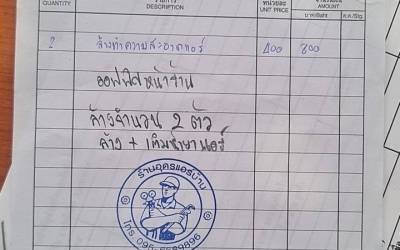 QUANTITY DESCRIPTION UNIT PRICE AMOUNT
2 ล้างทำความสะอาดแอร์ 400 800
ออฟฟิศหน้าร้าน
ล้างจำนวน 2 ตัว
ล้าง + เติมน้ำยาแอร์
ร้านอุดรแอร์บ้าน
โทร.